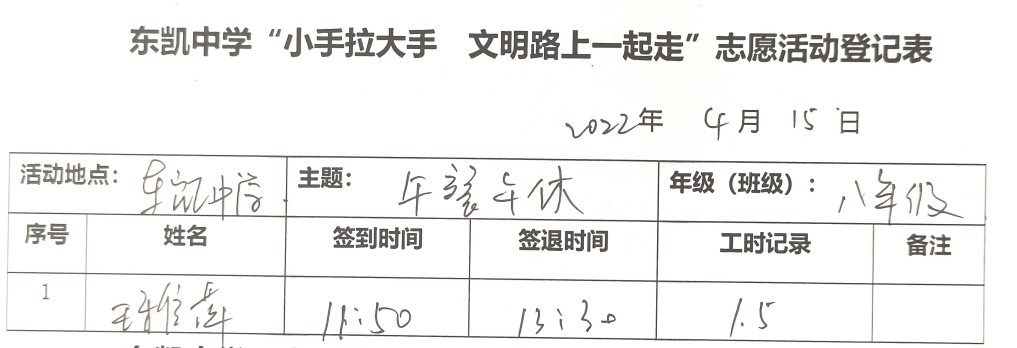 东凯中学“小手拉大手 文明路上一起走”志愿活动登记表
2022年 4月 15日
活动地点： 东凯中学 主题： 午餐午休 年级（班级）： 八年级
序号 姓名 签到时间 签退时间 工时记录 备注
1 11:50 13:30 1.5